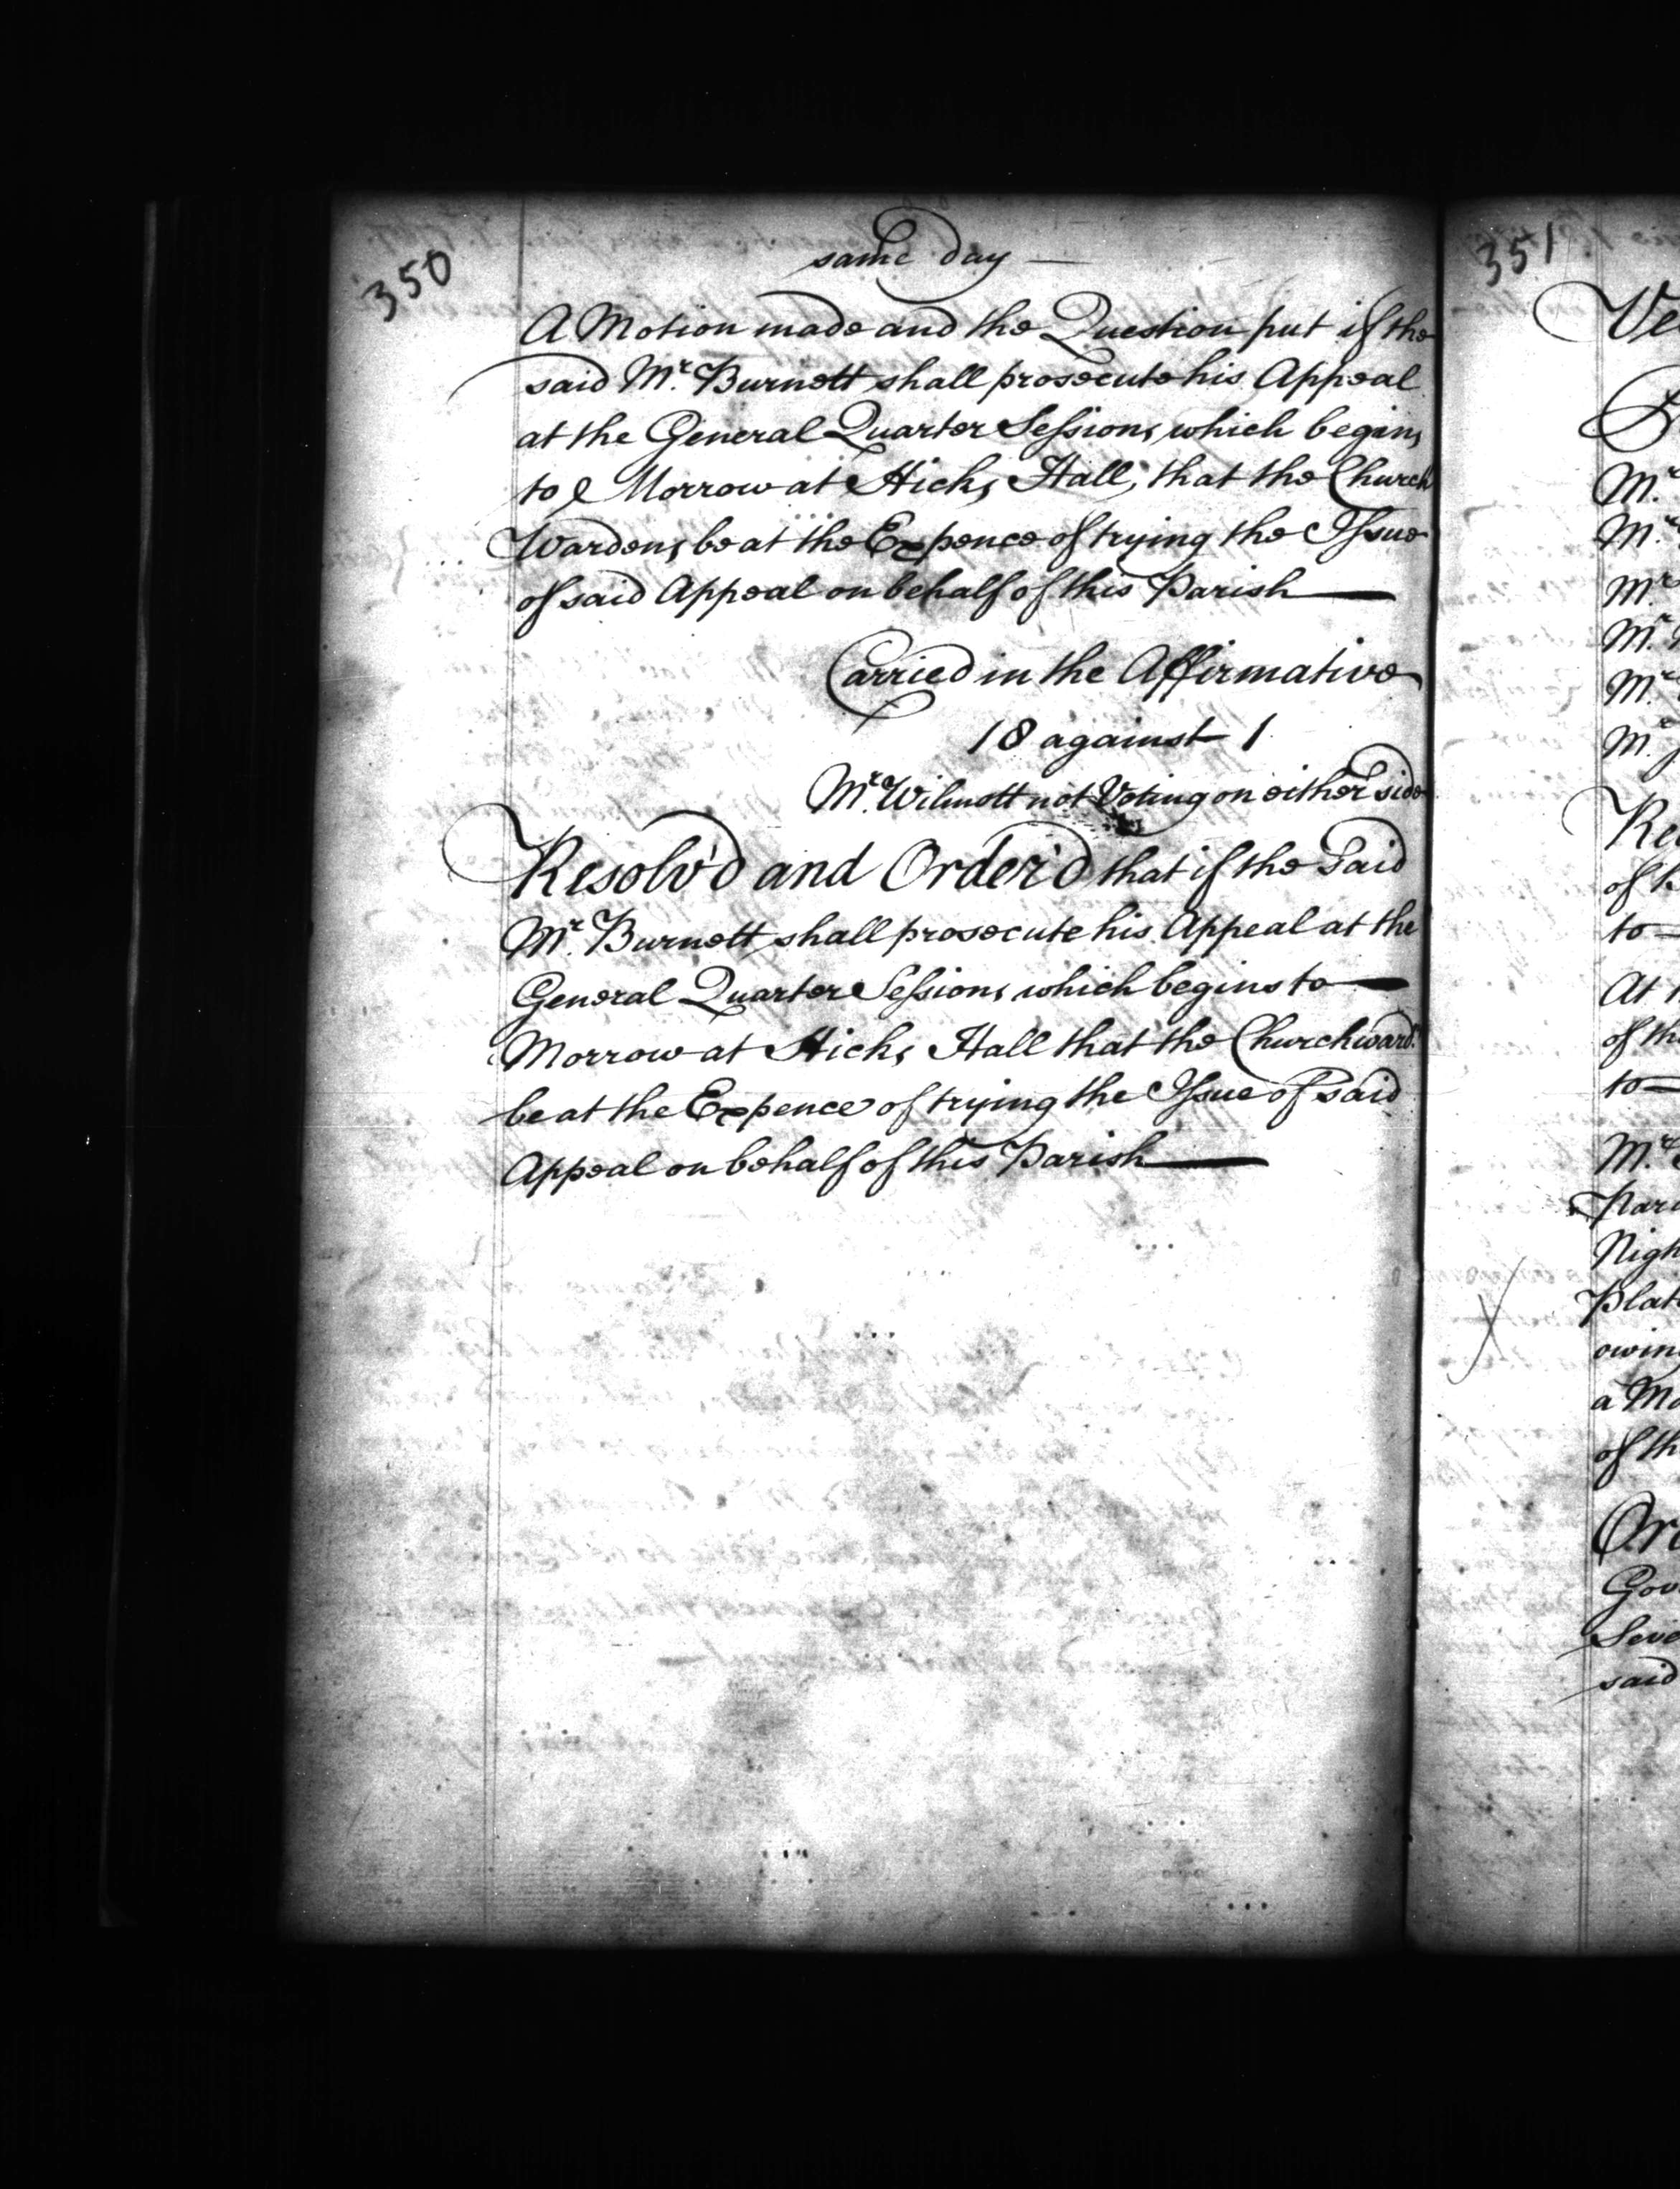 350
same day
A Motion made and the Question put if the
said Mr. Burnett shall prosecute his Appeal
at the General Quarter Sessions which begins
to Morrow at Hicks Hall, that the Church
Wardens be at the Expence of trying the Issue
of said Appeal on behalf of this Parish
Carried in the Affirmative
18 against 1
Mr. Wilmott not Voting on either side
Resolv'd and Order'd that if the said
Mr. Burnett shall prosecute his Appeal at the
General Quarter Sessions which begins to
Morrow at Hicks Hall that the Churchward.s
be at the Expence of trying the Issue of said
Appeal on behalf of this Parish
351
Ve
Mr.
Mr.
Mr.
Mr.
Mr.
Mr.
Re
of
to
At
of
to
Mr.
Nigh
Plat
owin
a Mo
of th
Or
Gov
Seve
said